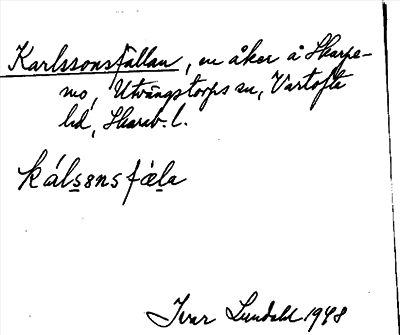 Karlssonsfällan, en åker å Skarpe-
mo, Utvängstorps sn, Vartofta
hd, Skarab. l.
kálsɜnsfæ̀la
Ivar Lundahl 1948